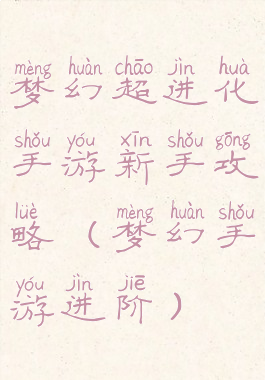 mèng huàn chāo jìn huà
梦幻超进化
shǒu yóu xīn shǒu gōng
手游新手攻
lüè mèng huàn shǒu
略（梦幻手
yóu jìn jiē
游进阶）